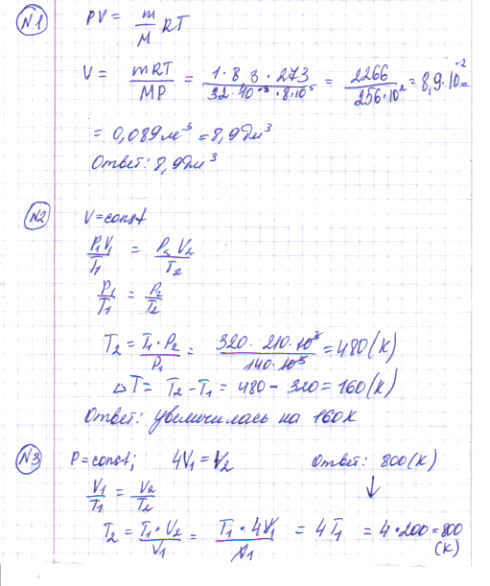 N1
PV = m/M RT
V = mRT/MP = 1·8,3·273/32·10⁻³·8·10⁵ = 2266/256·10² = 8,9·10⁻² =
= 0,089 м³ = 8,9 дм³
Ответ: 8,9 дм³
N2
V = const
P₁V₁/T₁ = P₂V₂/T₂
P₁/T₁ = P₂/T₂
T₂ = T₁·P₂/P₁ = 320·210·10³/140·10³ = 480 (К)
ΔT = T₂ - T₁ = 480 - 320 = 160 (К)
Ответ: увеличилась на 160К
N3
P = const; 4V₁ = V₂
Ответ: 800 (К)
↓
V₁/T₁ = V₂/T₂
T₂ = T₁·V₂/V₁ = T₁·4V₁/V₁ = 4T₁ = 4·200 = 800 (К)